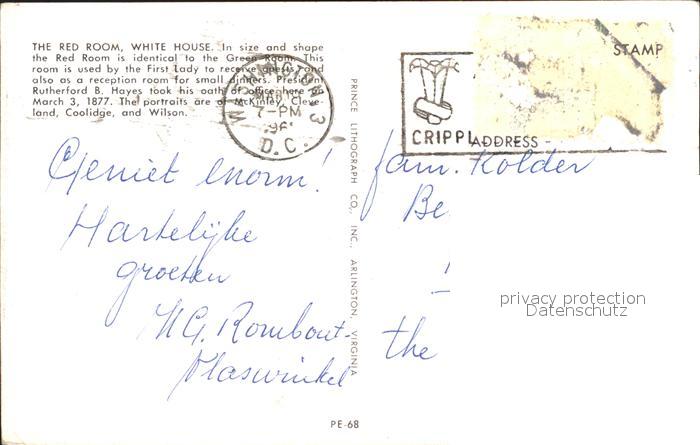 THE RED ROOM, WHITE HOUSE. In size and shape
the Red Room is identical to the Green Room. This
room is used by the First Lady to receive guests and
also as a reception room for small dinners. President
Rutherford B. Hayes took his oath of office here on
March 3, 1877. The portraits are of McKinley, Cleve-
land, Coolidge, and Wilson.
WASHINGTON 3
MAR 
7-PM
196
D.C.
STAMP
CRIPPL
ADDRESS
PRINCE LITHOGRAPH CO., INC., ARLINGTON, VIRGINIA
Geniet enorm!
Hartelijke
groeten
Rombout-
Vlaswinkel
fam. Kolder
Be
the
privacy protection
Datenschutz
PE-68